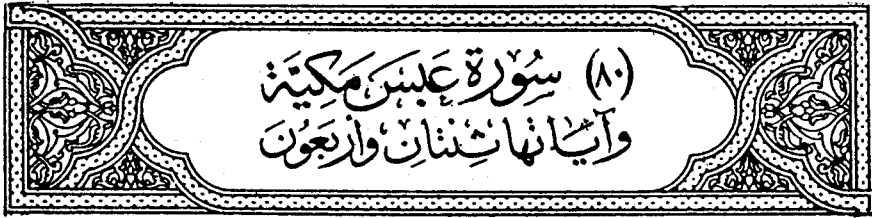 (٨٠) سُوْرَة عَبَسَ مَكِيَّة
وَآيَاتهَا ثِنْتَانِ وَأَرْبَعُونَ